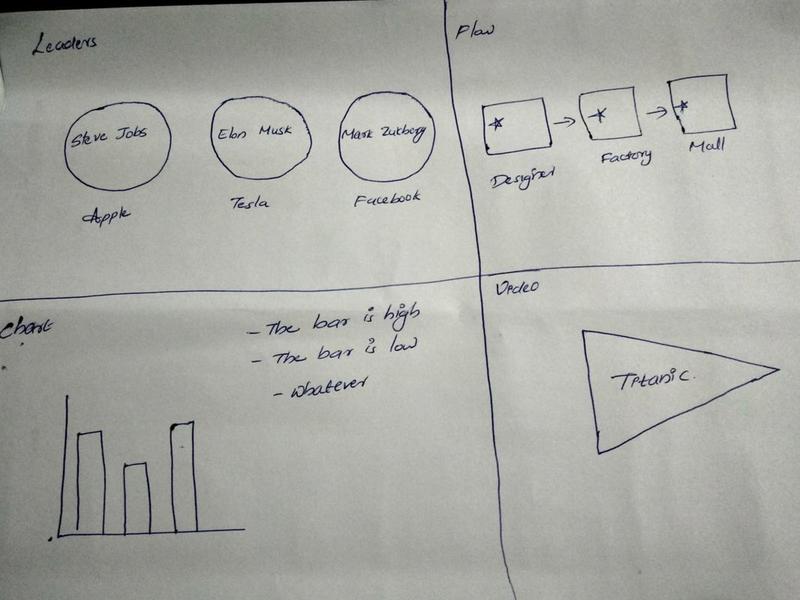 Leaders
Steve Jobs
Elon Musk
Mark Zukberg
Apple
Tesla
Facebook
Flow
Designer
Factory
Mall
Chart
- The bar is high
- The bar is low
- whatever
Video
Titanic.